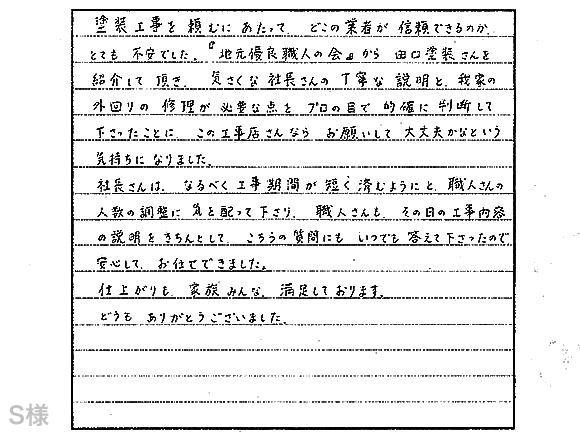 塗装工事を頼むにあたって、どこの業者が信頼できるのか、
とても不安でした。『地元優良職人の会』から田口塗装さんを
紹介して頂き、気さくな社長さんの丁寧な説明と、我家の
外回りの修理が必要な点を、プロの目で的確に判断して
下さったことに、この工事店さんならお願いして大丈夫かなという
気持ちになりました。
社長さんは、なるべく工事期間が短く済むようにと、職人さんの
人数の調整に気を配って下さり、職人さんも、その日の工事内容
の説明をきちんとして、こちらの質問にもいつでも答えて下さったので
安心して、お任せできました。
仕上がりも、家族みんな、満足しております。
どうもありがとうございました。
S様